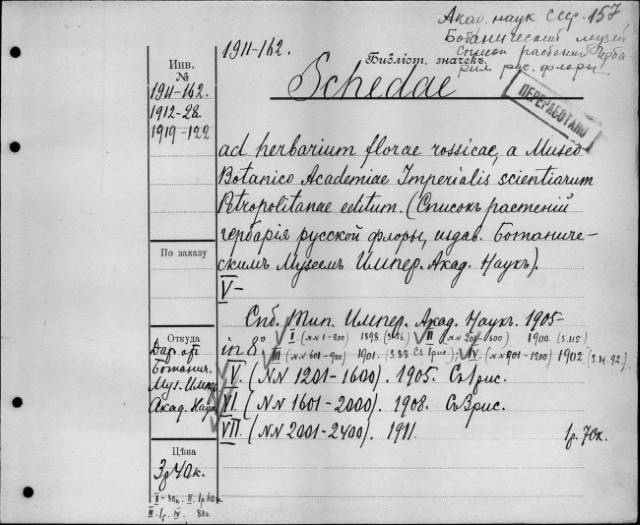 Акад. наук ССР. 157
Ботанический музей
Список растений Герба-
рия рус. флоры
1911-162.
Библіот. значекъ.
Schedae
ПЕРЕРАБОТАНО
Инв.
№
1911-162.
1912-28.
1919-122
ad herbarium florae rossicae, a Museo
Botanico Academiae Imperialis scientiarum
Petropolitanae editum. (Списокъ растеній
гербарія русской флоры, издав. Ботаниче-
скимъ Музеемъ Импер. Акад. Наукъ).
По заказу
V-
Спб. Тип. Импер. Акад. Наукъ. 1905-
Откуда
Дар от
Ботанич.
Муз. Импер.
Акад. Наукъ
in 8°
I. (NN 1-200) 1898. II (NN 201-600) 1900. (3.115)
III (NN 601-900) 1901. (3.88 Съ 1 рис.); IV. (NN 901-1200) 1902.
V. (NN 1201-1600). 1905. Съ 1 рис.
VI. (NN 1601-2000). 1908. Съ 3 рис.
VII. (NN 2001-2400). 1911. 1р. 70к.
Цѣна
3р 40к.
I-80к. II. 1р 60к
III. 1р. IV. 80к.